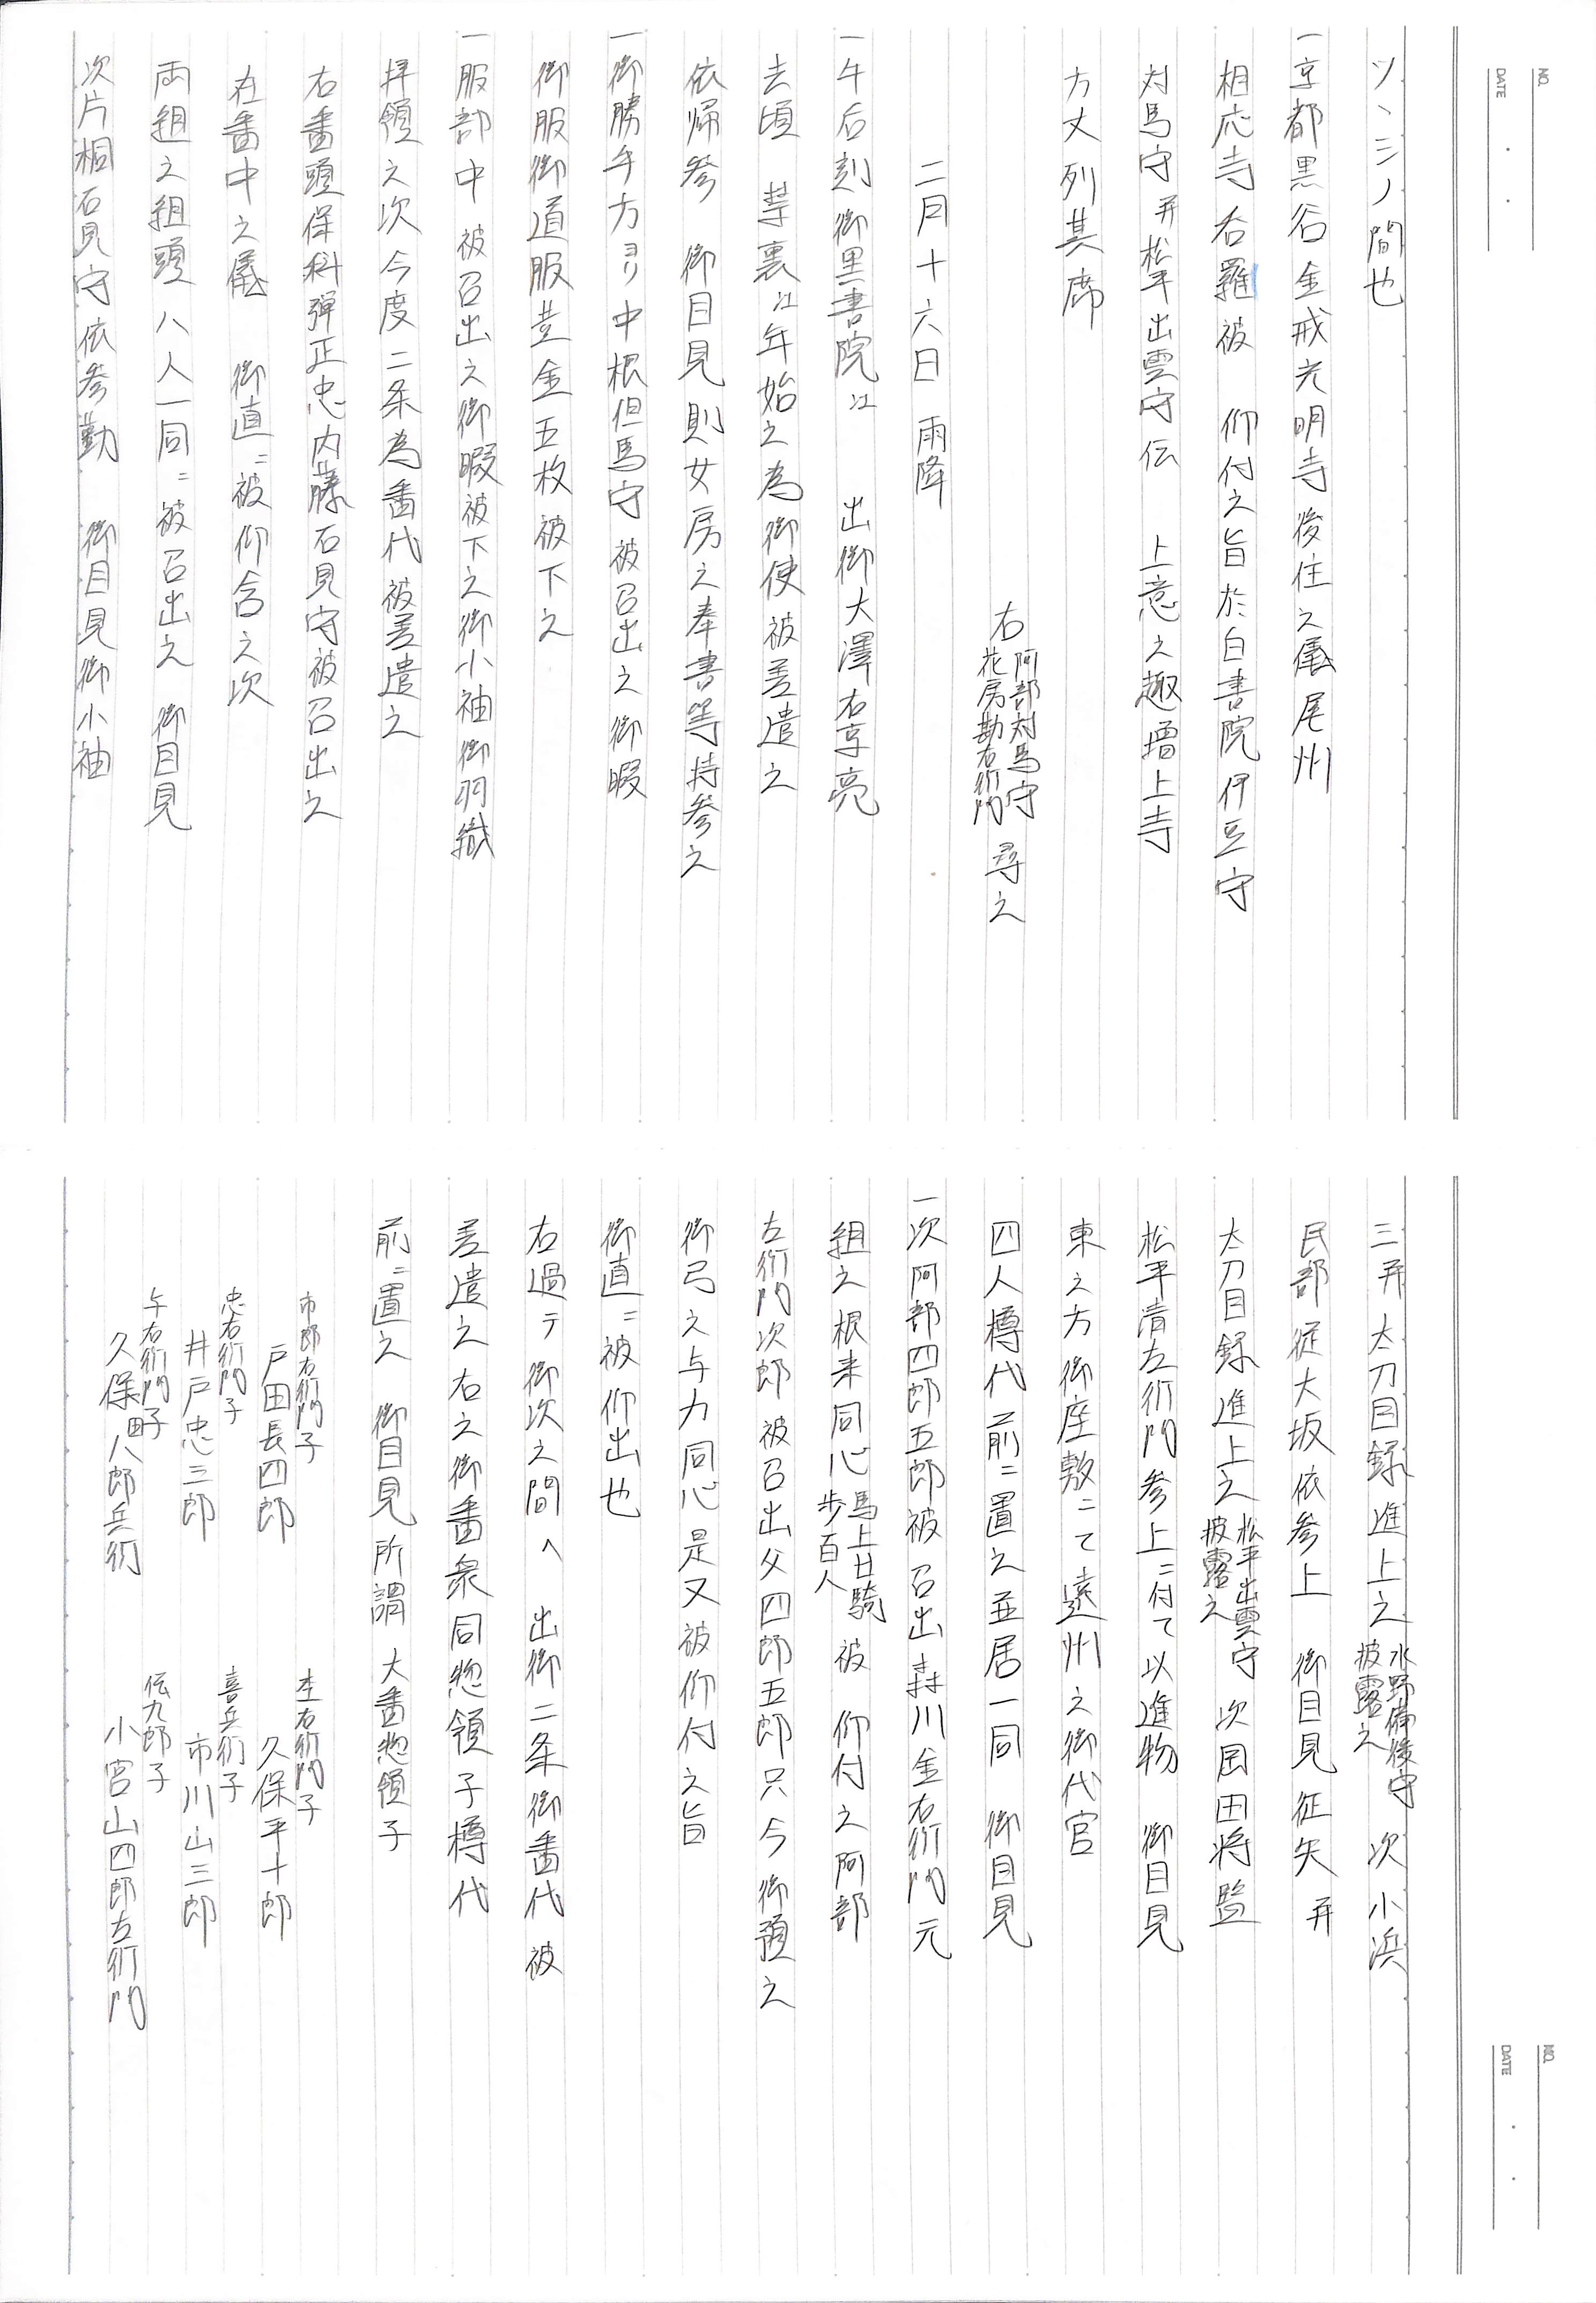 ツヽミノ間也
一京都黒谷金戒光明寺後住之儀尾州
相応寺呑羅被　仰付之旨於白書院伊豆守
対馬守并松平出雲守伝　上意之趣増上寺
方丈列其席
右阿部対馬守
花房勘右衛門　尋之
二月十六日　雨降
一午后刻御黒書院江　出御大澤右京亮
去頃　禁裏江年始之為御使被差遣之
依帰参　御目見則女房之奉書等持参之
一御勝手方ヨリ中根但馬守被召出之御暇
御服御道服並金五枚被下之
一服部中　被召出之御暇被下之御小袖御羽織
拝領之次今度二条為番代被差遣之
右番頭保科弾正忠内藤石見守被召出之
在番中之儀　御直ニ被仰含之次
両組之組頭八人一同ニ被召出之　御目見
次片桐石見守依参勤　御目見御小袖
NO.
DATE
三并太刀目録進上之水野備後守
披露之　次小浜
民部従大坂依参上　御目見征矢并
太刀目録進上之松平出雲守
披露之　次岡田将監
松平清左衛門参上ニ付て以進物　御目見
東之方御座敷ニて遠州之御代官
四人樽代前ニ置之並居一同　御目見
一次阿部四郎五郎被召出森川金右衛門元
組之根来同心馬上廿騎
歩百人　被　仰付之阿部
左衛門次郎被召出父四郎五郎只今御預之
御弓之与力同心是又被仰付之旨
御直ニ被仰出也
右過テ御次之間へ　出御二条御番代被
差遣之右之御番衆同惣領子樽代
前ニ置之　御目見所謂　大番惣領子
市郎右衛門子
戸田長四郎
杢右衛門子
久保平十郎
忠右衛門子
井戸忠三郎
喜兵衛子
市川山三郎
午右衛門子
久保田八郎兵衛
伝九郎子
小宮山四郎左衛門
NO.
DATE